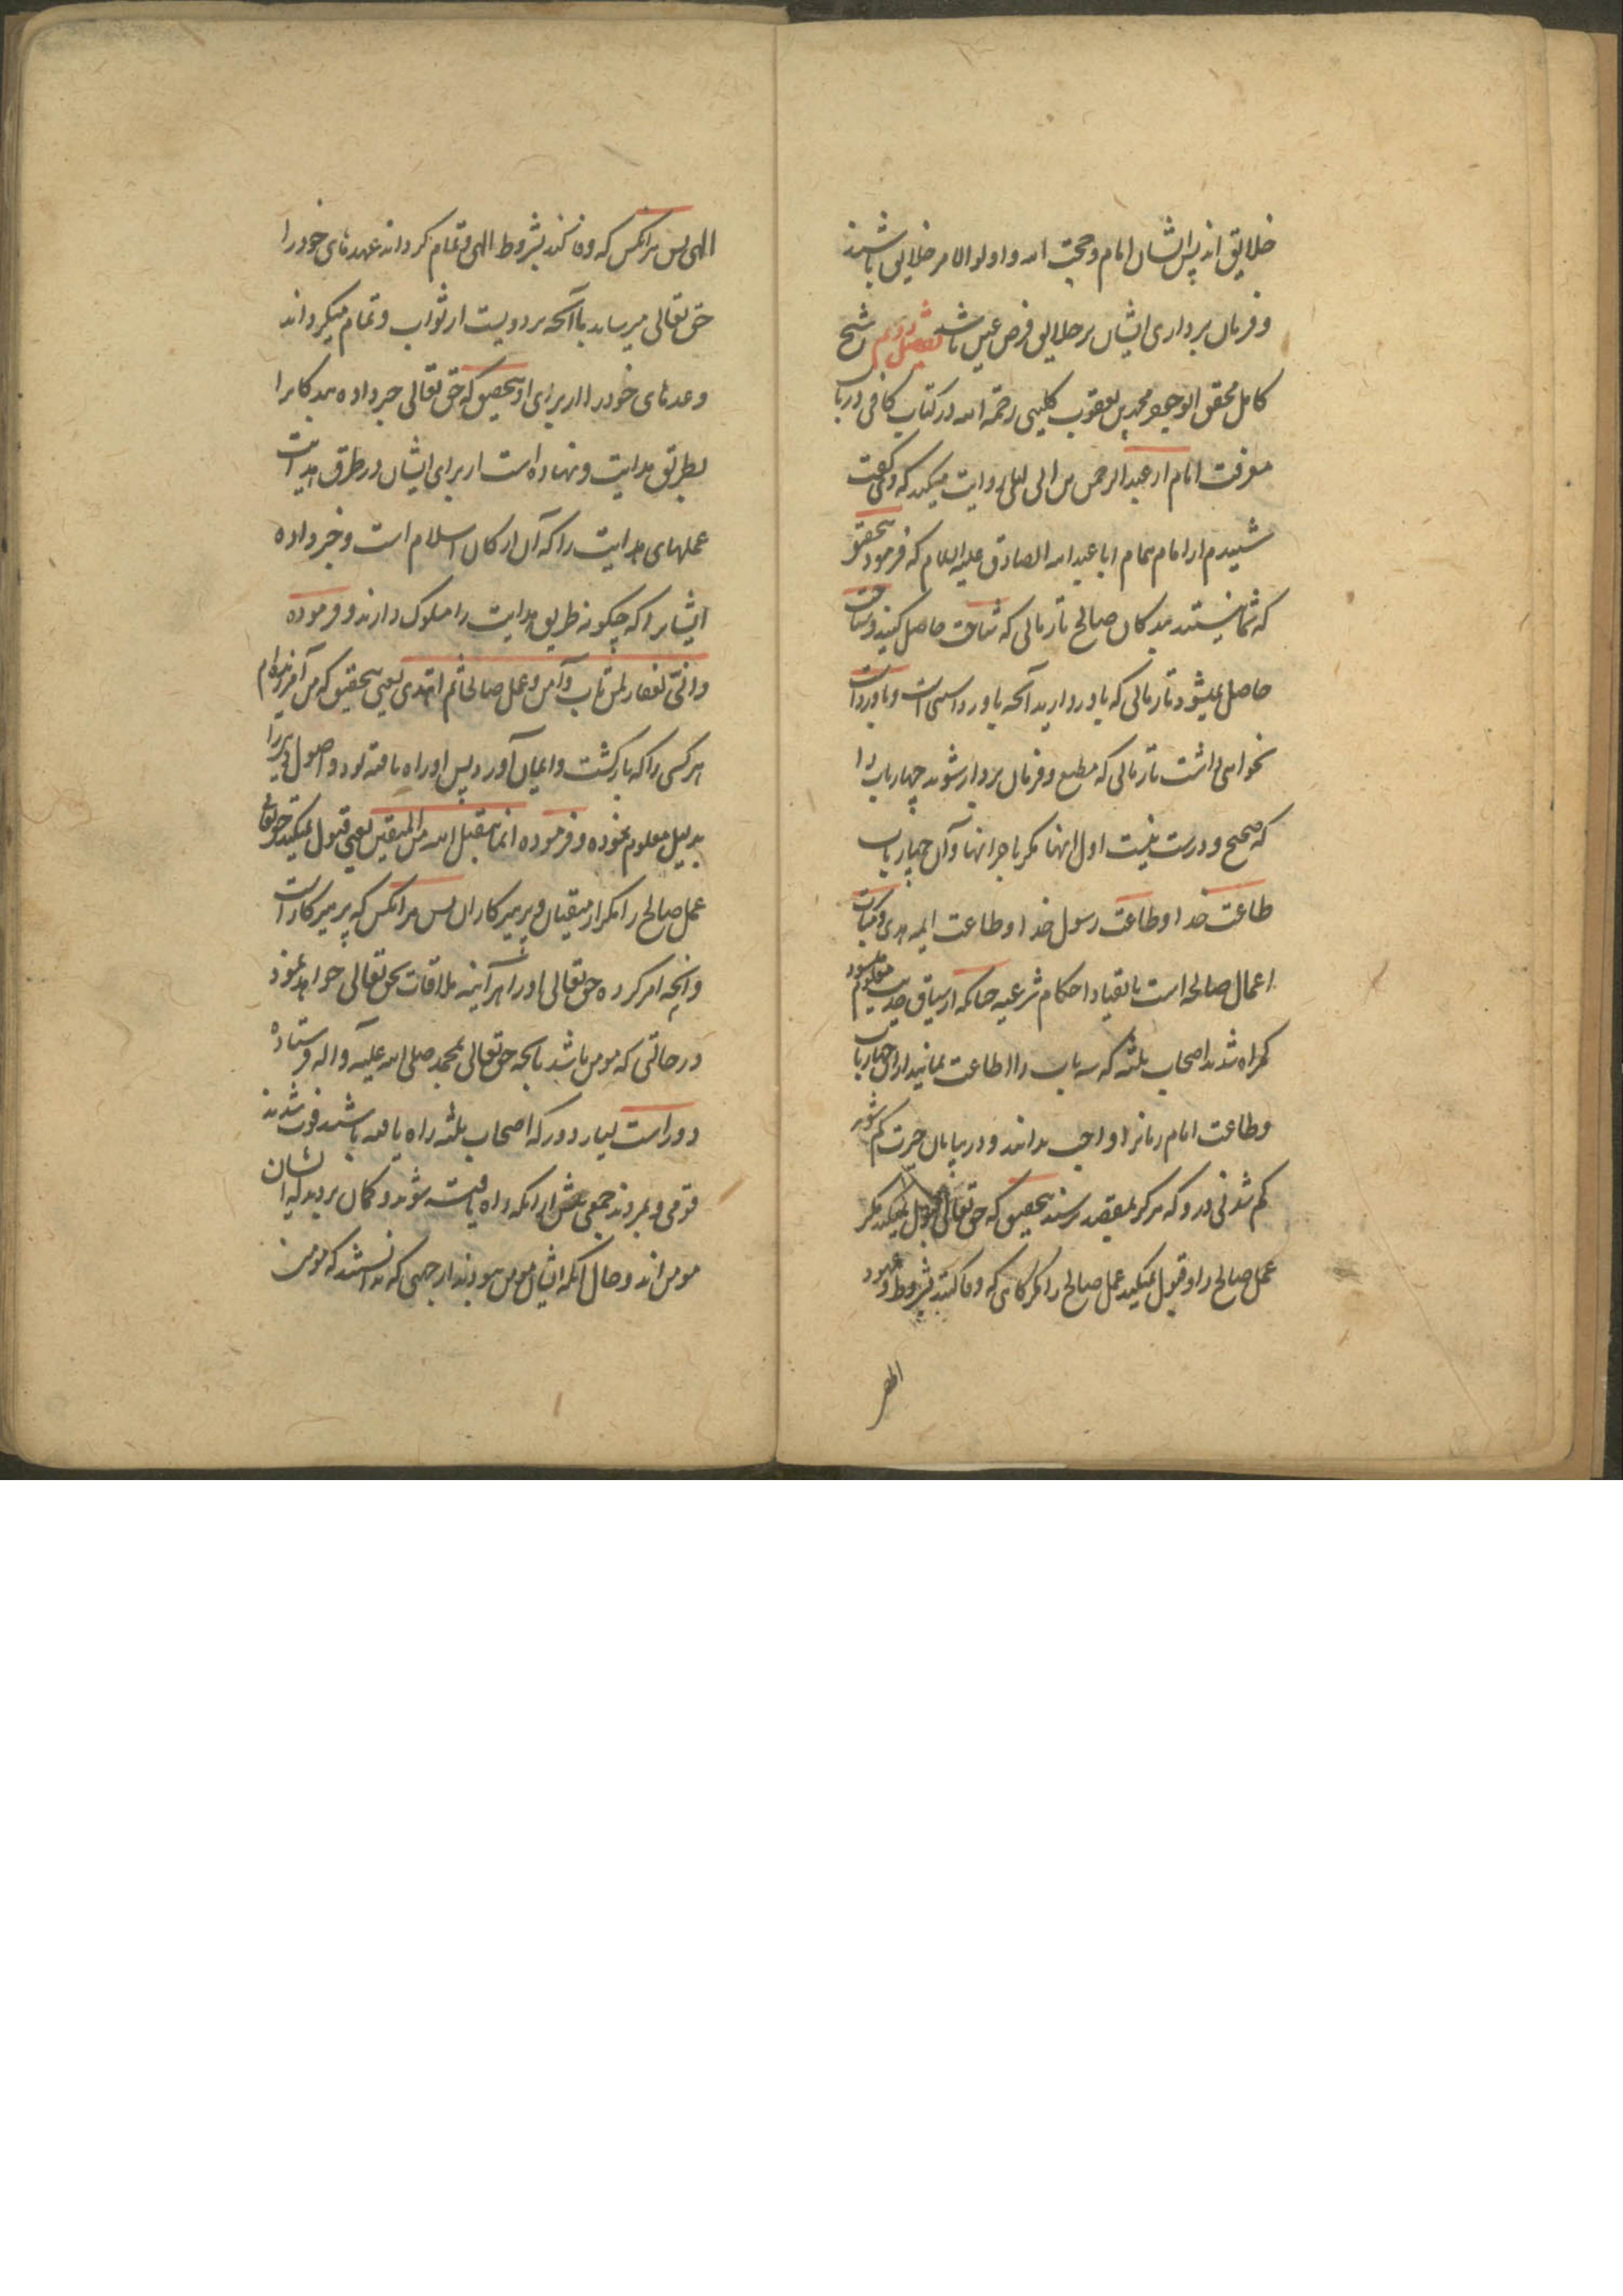 خلایق اند پس ایشان امام و حجت الله و اولو الامر خلایق باشند
و فرمان برداری ایشان بر خلایق فرض عین باشد فصل دویم شیخ
کامل محقق ابو جعفر محمد بن یعقوب کلینی رحمة الله در کتاب کافی در باب
معرفت امام از عبد الرحمن بن ابی لیلی روایت میکند که وی گفت
شنیدم از امام همام ابا عبد الله الصادق علیه السلام که فرمود بتحقیق
که شما نیستید بندکان صالح تا زمانی که شناخت حاصل کنید و شناخت
حاصل نمیشود تا زمانی که باور دارید آنچه باور داشتنی است و باور داشت
نخواهی داشت تا زمانی که مطیع و فرمان بردار شوید چهار باب را
که صحیح و درست نیست اول اینها مکر با خر اینها و آن چهار باب
طاعت خدا و طاعت رسول خدا و طاعت ایمه هدی و
اعمال صالحه است بانقیاد احکام شرعیه چنانکه از سیاق حدیث معلوم میشود
کمراه شدند اصحاب ثلثه که سه باب را اطاعت نمایند از این چهار باب
و طاعت امام زمانرا واجب ندانند و در بیابان حیرت کم شوند
کم شدنی دور که هرکز بمقصد نرسند بتحقیق که حق تعالی قبول نمیکند مکر
عمل صالح را و قبول نمیکند عمل صالح را مکر کسانی که وفا کنند بشروط و عهود
الهی پس هر آنکس که وفا کند بشروط الهی و تمام کرداند عهدهای خود را
حق تعالی میرساند باآنچه نزد ویست از ثواب و تمام میکرداند
وعدهای خود را از برای او بتحقیق که حق تعالی خبر داده بندکانرا
بطریق هدایت و نهاده است از برای ایشان در طرق هدایت
عملهای هدایت را که آن ارکان اسلام است و خبر داده
ایشانرا که چکونه طریق هدایت را سلوک دارند و فرموده
و انی لغفار لمن تاب و آمن و عمل صالحا ثم اهتدی یعنی بتحقیق که من آمرزنده‌ام
هر کسی را که باز کشت و ایمان آورد پس او راه یافته بود و اصول دین را
بدلیل معلوم نموده و فرموده انما یتقبل الله من المتقین یعنی قبول نمیکند حق تعالی
عمل صالح را مکر از متقیان و پرهیزکاران پس هر آنکس که پرهیزکار است
و آنچه امر کرده حق تعالی او را هر آینه ملاقات بحق تعالی خواهد نمود
در حالتی که مومن باشد بآنچه حق تعالی بمحمد صلی الله علیه و اله فرستاده
دور است بسیار دور که اصحاب ثلثه راه یافته باشند فوت شدند
قومی و بمردند جمعی پیش از آنکه راه یافت شوند و کمان بردند که ایشان
مومن اند و حال آنکه ایشان مومن نبودند از جهتی که ندانستند که مومن